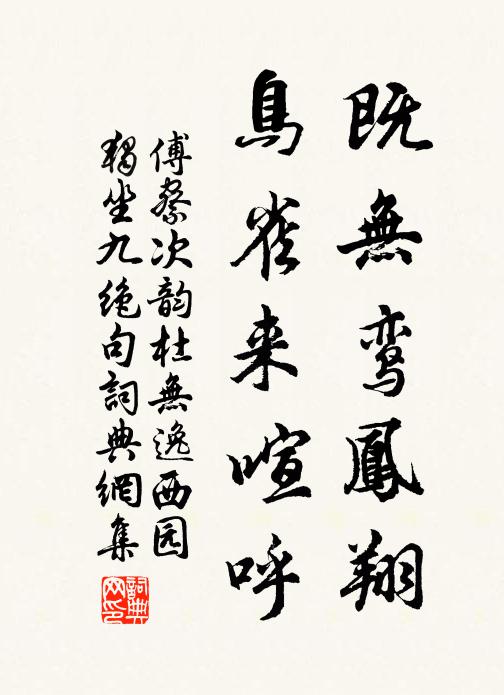 既無鸾鳳翔
鳥雀来喧呼
傅察次韵杜無逸西园
獨坐九绝句詞典網集
詞典
网印